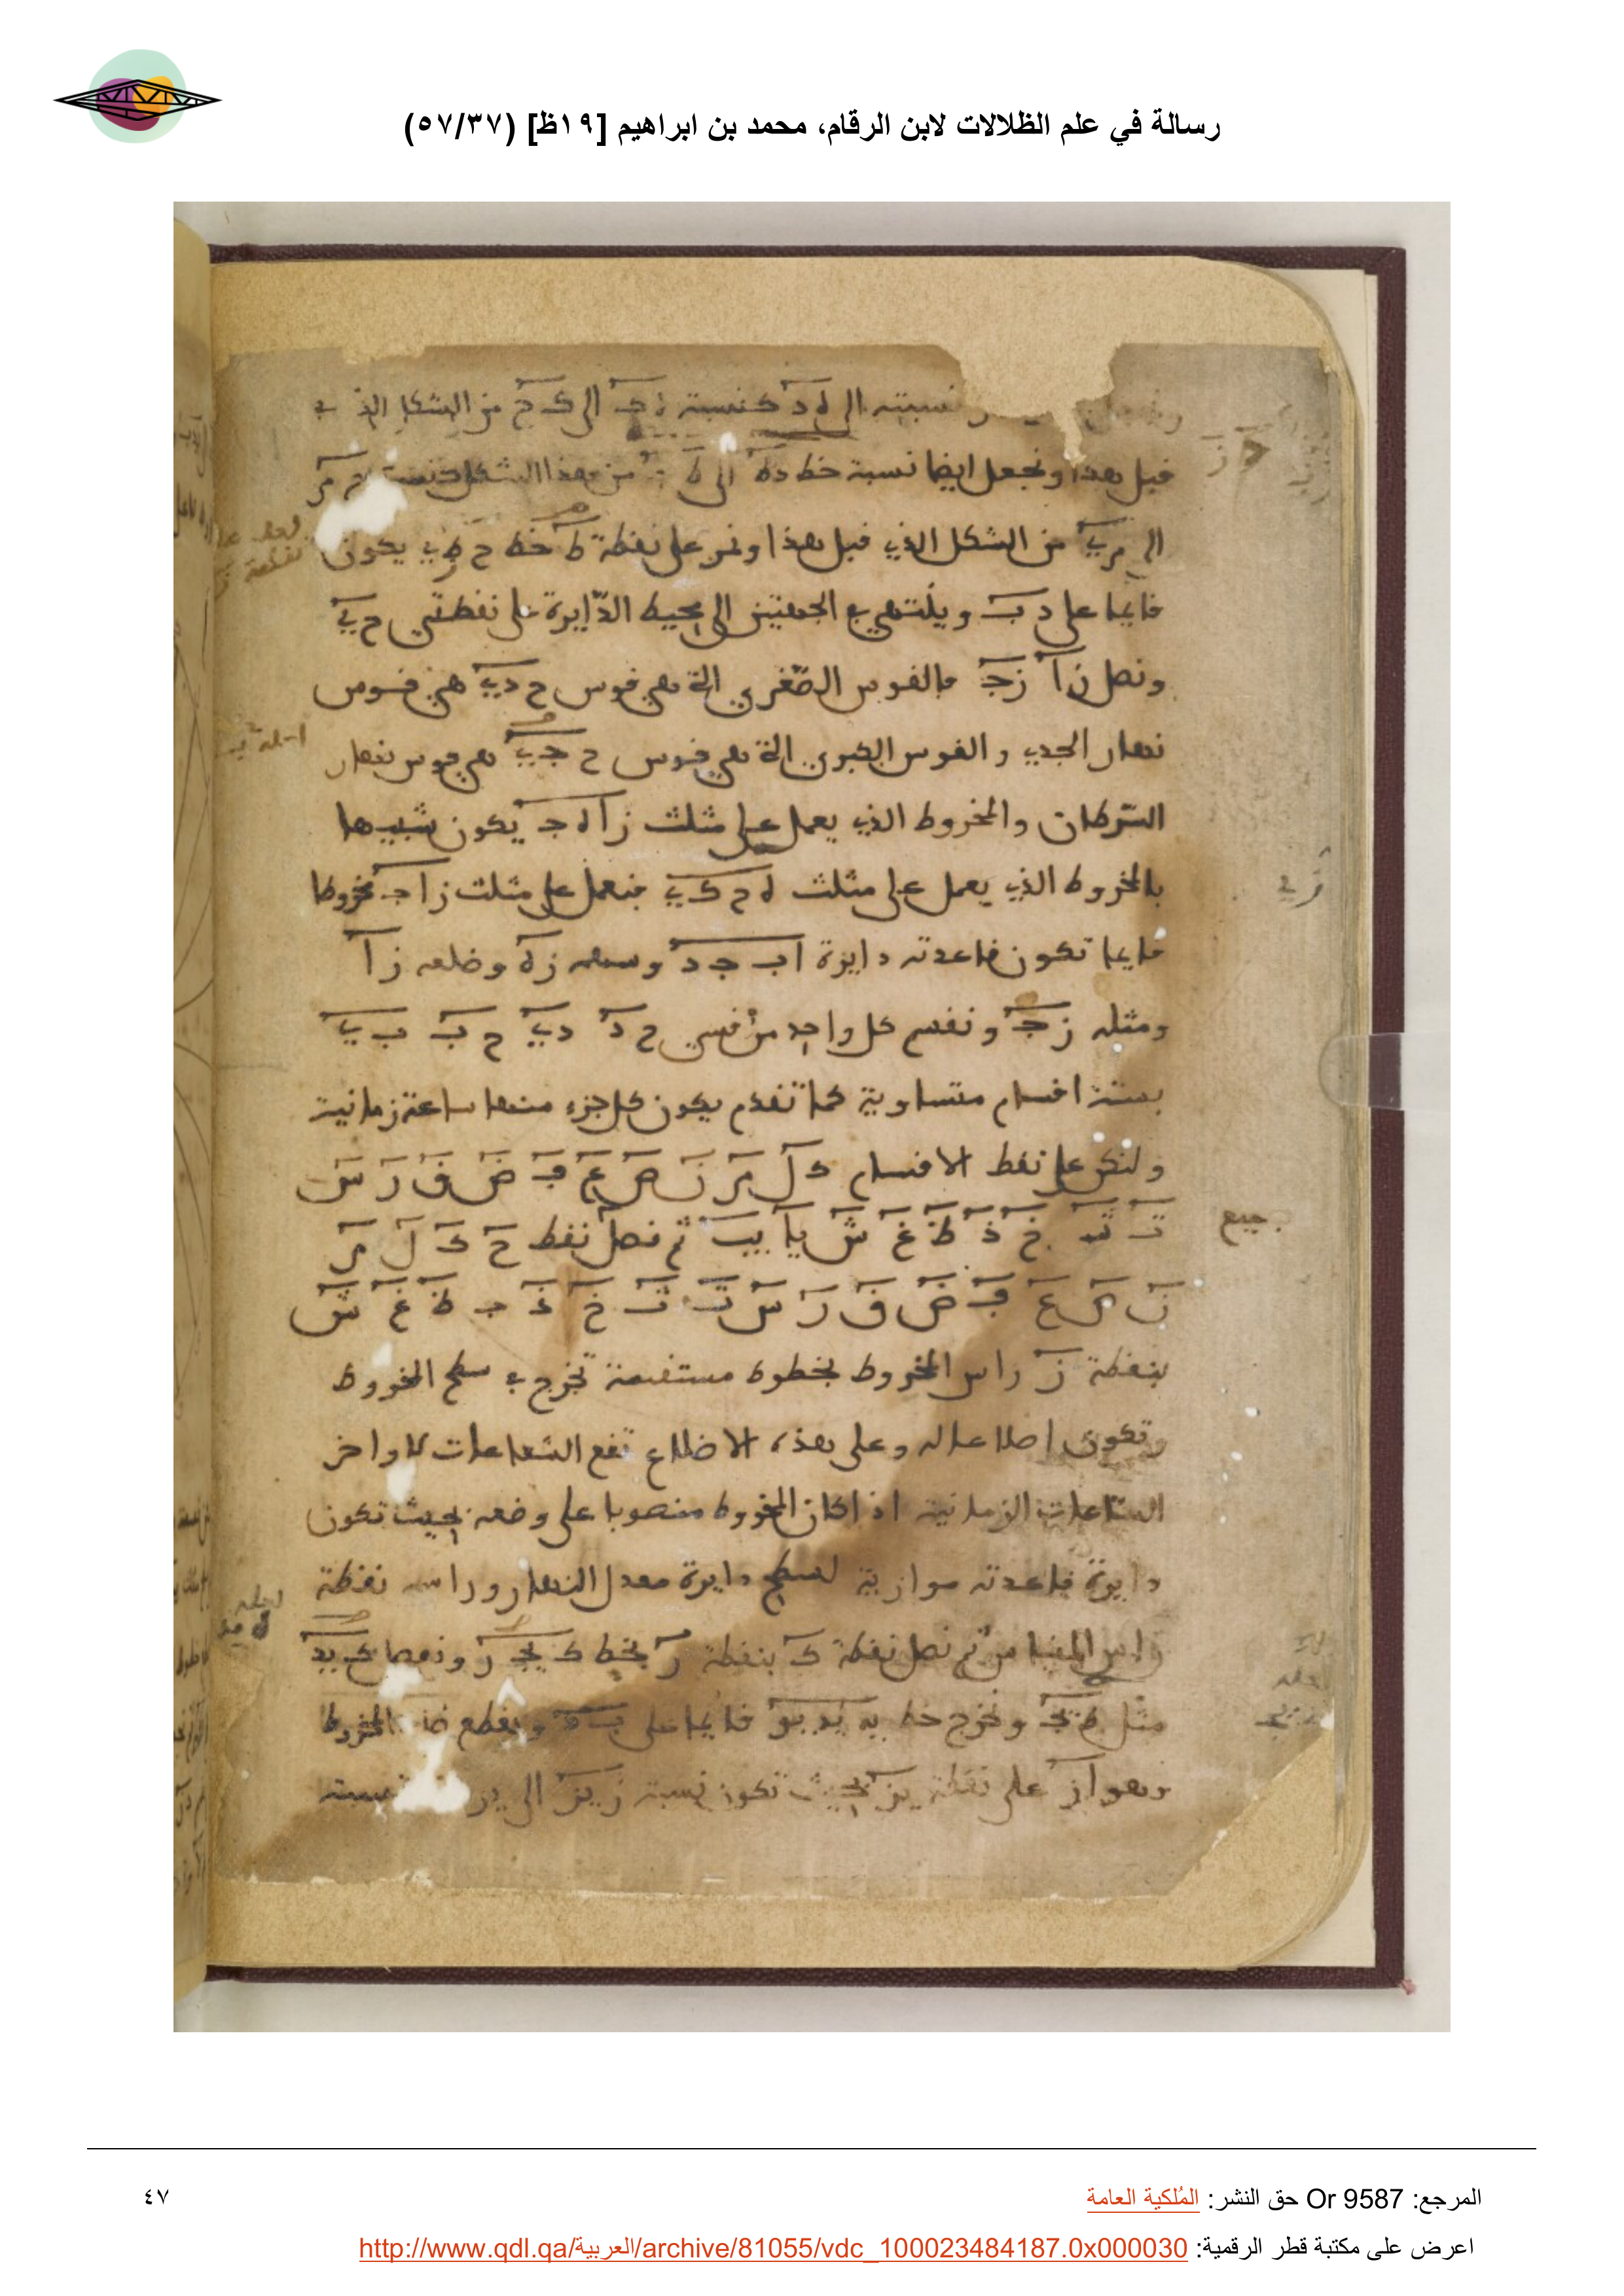 رسالة في علم الظلالات لابن الرقام، محمد بن ابراهيم [١٩ظ] (٥٧/٣٧)
نسبته الى ه د كنسبة الى ك ح من الشكل الذي
قبل هذا ونجعل ايضا نسبة خط ده الى من هذا الشكل كنسبة
الى من الشكل الذي قبل هذا ونمر على نقطة ط خط ح ط ي يكون
قايما على د ب وينتهي في الجهتين الى محيط الدايرة على نقطتي ح ي
ونصل ز ا ز ج فالقوس الصغرى التي هي قوس ح د ي هي قوس
نهار الجدي والقوس الكبرى التي هي قوس ح ج ي هي قوس نهار
السرطان والمخروط الذي يعمل على مثلث ز ا ه ج يكون شبيها
بالمخروط الذي يعمل على مثلث ه ح ك ي فنعمل على مثلث ز ا ج مخروطا
قايما تكون قاعدته دايرة ا ب ج د وسهمه ز ه وضلعه ز ا
ومثله ز ج ونقسم كل واحد من قسي ح د د ي ح ب ب ي
بستة اقسام متساوية كما تقدم يكون كل جزء منها ساعة زمانية
ولتكن على نقط الاقسام ك ل م ن ص ع ف ض ق ر س
ت ث خ ذ ظ غ ش يا يب ثم نصل نقط ح ك ل م
ن ص ع ف ض ق ر س ت ث خ ذ ب ظ غ ش
بنقطة ز راس المخروط بخطوط مستقيمة تخرج في سطح المخروط
وتكون اضلاعا له وعلى هذه الاضلاع تقع الشعاعات لاواخر
الساعات الزمانية اذا كان المخروط منصوبا على وضعه بحيث تكون
دايرة قاعدته موازية لسطح دايرة معدل النهار وراسه نقطة
راس المقياس ثم نصل نقطة ك بنقطة ر بخط ك يج ر ونفصل يد
مثل يج ونخرج خط يه يد يو قايما على ويقطع المخروط
وهو ا ز على نقطة يز بحيث تكون نسبة ز يز الى نسبة
جميع
المرجع: Or 9587 حق النشر: المُلكية العامة
٤٧
اعرض على مكتبة قطر الرقمية: http://www.qdl.qa/العربية/archive/81055/vdc_100023484187.0x000030